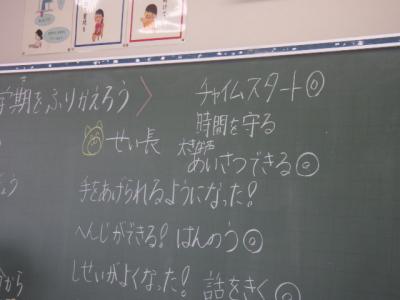 学期をふりかえろう
せい長
手をあげられるようになった!
へんじができる! はんのう◎
しせいがよくなった!
チャイムスタート◎
時間を守る
大きな声
あいさつできる◎
話をきく◎